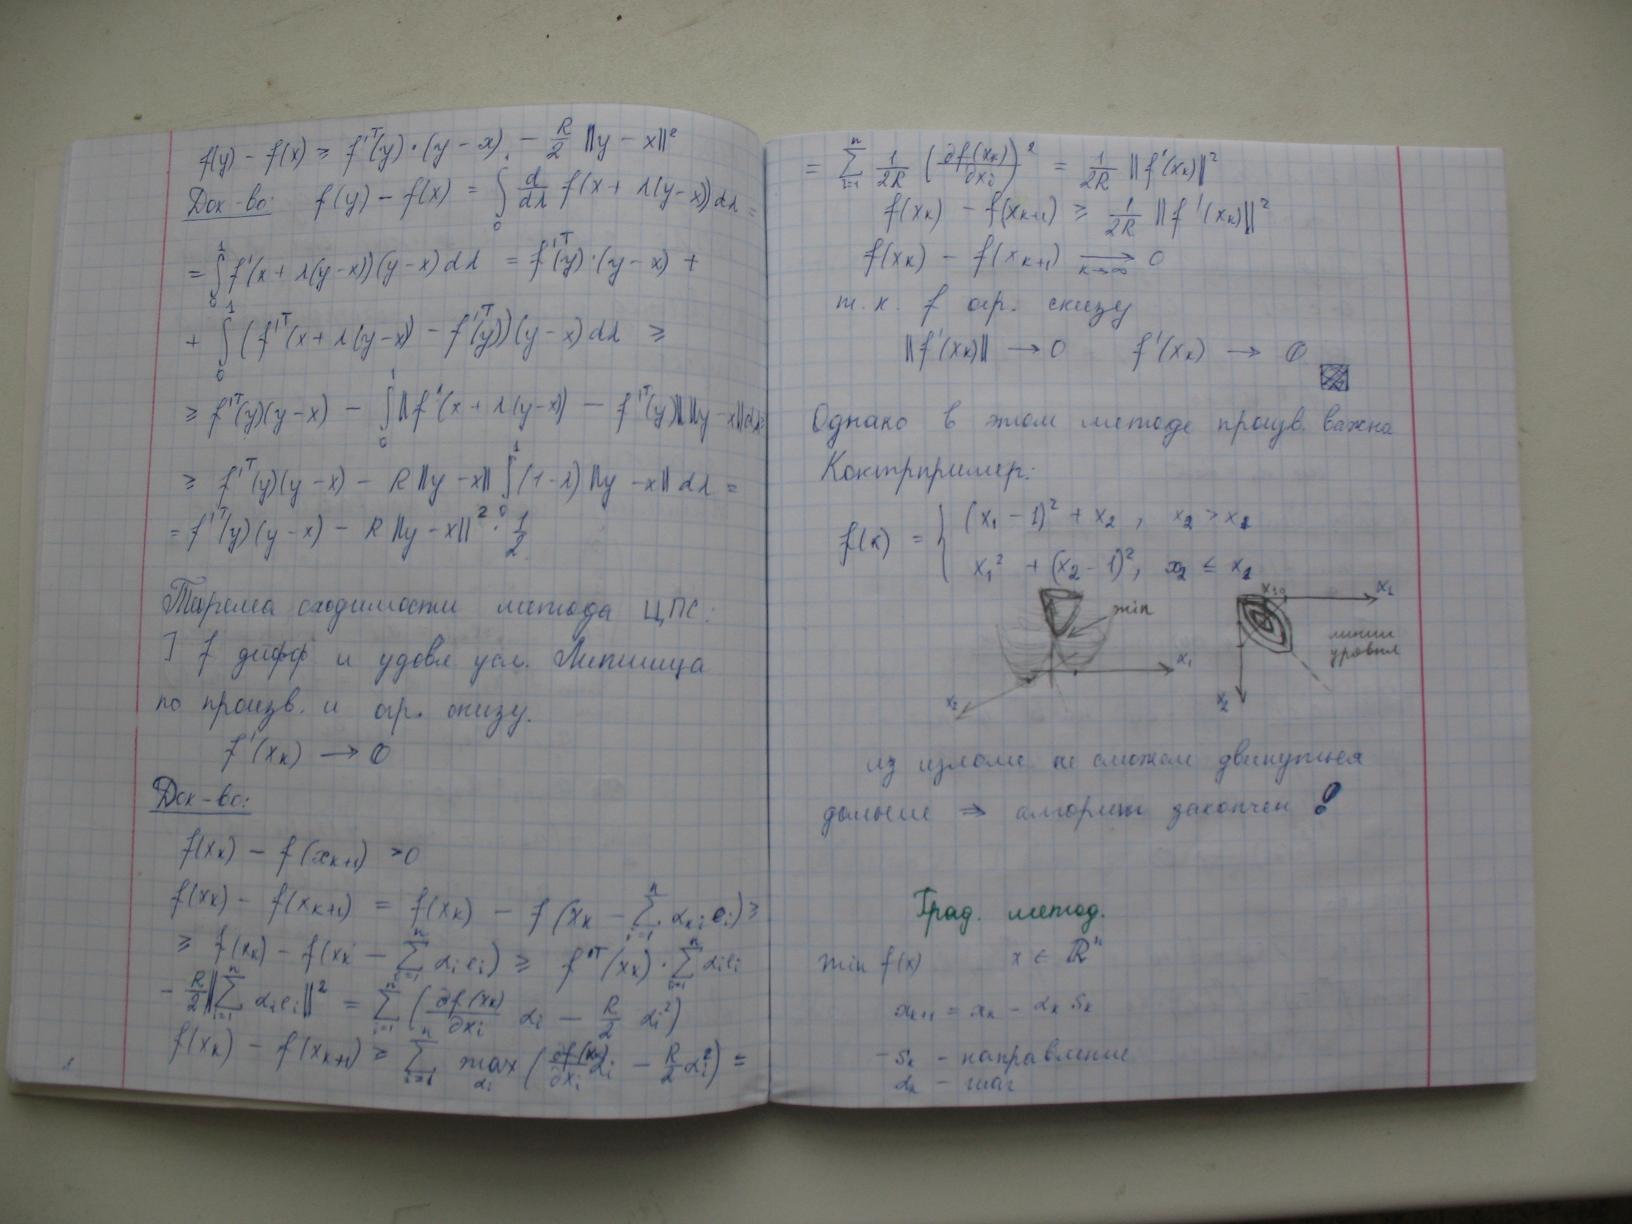 f(y) - f(x) ≥ f'ᵀ(y)·(y - x) - R/2 ||y - x||²
Док-во: f(y) - f(x) = ∫₀¹ d/dλ f(x + λ(y-x))dλ =
= ∫₀¹ f'(x + λ(y-x))(y-x)dλ = f'ᵀ(y)·(y-x) +
+ ∫₀¹ (f'ᵀ(x + λ(y-x)) - f'ᵀ(y))(y-x)dλ ≥
≥ f'ᵀ(y)(y-x) - ∫₀¹ ||f'(x + λ(y-x)) - f'ᵀ(y)|| ||y-x||dλ ≥
≥ f'ᵀ(y)(y-x) - R||y-x|| ∫₀¹ (1-λ)||y-x||dλ =
= f'ᵀ(y)(y-x) - R||y-x||² · 1/2
Теорема сходимости метода ЦПС:
] f дифф и удовл усл. Липшица
по произв. и огр. снизу.
f'(xₖ) → 0
Док-во:
f(xₖ) - f(xₖ₊₁) > 0
f(xₖ) - f(xₖ₊₁) = f(xₖ) - f(xₖ - Σᵢ₌₁ⁿ αₖᵢeᵢ) ≥
≥ f(xₖ) - f(xₖ - Σᵢ₌₁ⁿ αᵢeᵢ) ≥ f'ᵀ(xₖ)·Σᵢ₌₁ⁿ αᵢeᵢ
- R/2 ||Σᵢ₌₁ⁿ αᵢeᵢ||² = Σᵢ₌₁ⁿ (∂f(xₖ)/∂xᵢ αᵢ - R/2 αᵢ²)
f(xₖ) - f(xₖ₊₁) ≥ Σᵢ₌₁ⁿ max_αᵢ (∂f(xₖ)/∂xᵢ αᵢ - R/2 αᵢ²) =
= Σᵢ₌₁ⁿ 1/2R (∂f(xₖ)/∂xᵢ)² = 1/2R ||f'(xₖ)||²
f(xₖ) - f(xₖ₊₁) ≥ 1/2R ||f'(xₖ)||²
f(xₖ) - f(xₖ₊₁) →_{k→∞} 0
т.к. f огр. снизу
||f'(xₖ)|| → 0 f'(xₖ) → 0
Однако в этом методе произв. важна
Контрпример:
f(x) = { (x₁ - 1)² + x₂, x₂ > x₁
x₁² + (x₂ - 1)², x₂ ≤ x₁
min
x₁
x₂
x₁₀
x₁
x₂
линии
уровня
из излома не сможем двинуться
дальше ⇒ алгоритм закончен !
Град. метод.
min f(x) x ∈ ℝⁿ
xₖ₊₁ = xₖ - αₖ sₖ
-sₖ - направление
αₖ - шаг